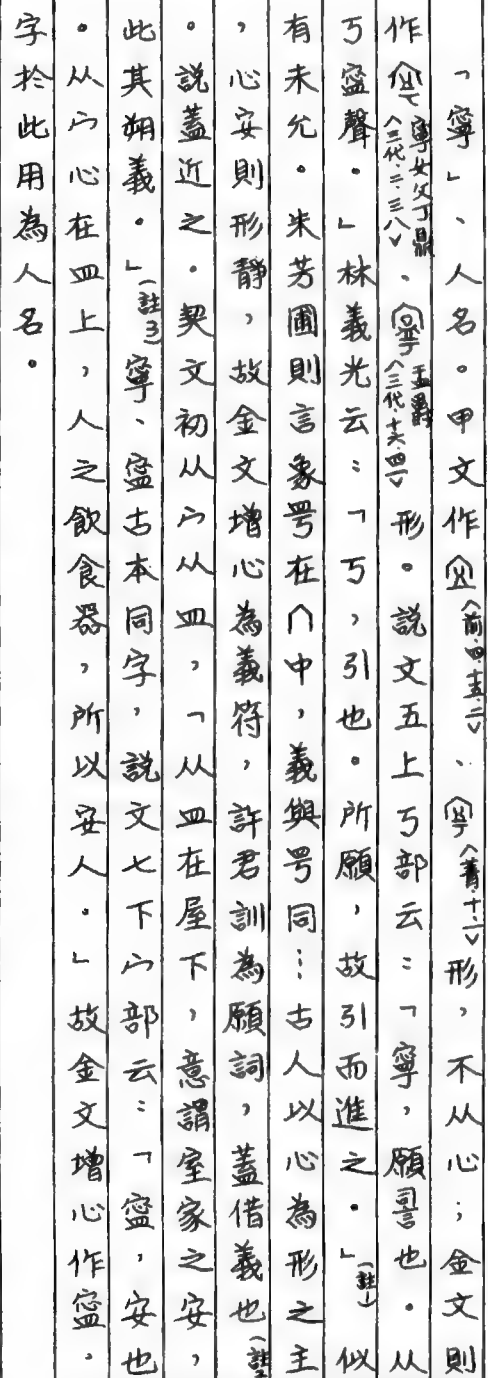 「寧」、人名。甲文作〈前.四.十五.二〉、〈菁.十.二〉形,不从心;金文則
作寧女父丁鼎〈三代.二.三八〉、盂爵〈三代.十六.四一〉形。說文五上丂部云:「寧,願䛐也.从
丂寍聲.」林義光云:「丂,引也。所願,故引而進之.」(註1)似
有未允。朱芳圃則言象甹在∩中,義與甹同⋯古人以心為形之主
,心安則形靜,故金文增心為義符,許君訓為願詞,蓋借義也(註2)
。說蓋近之.契文初从宀从皿,「从皿在屋下,意謂室家之安,
此其朔義.」(註3)寧、寍古本同字,說文七下宀部云:「寍,安也
。从宀心在皿上,人之飲食器,所以安人.」故金文增心作寍.
字於此用為人名。